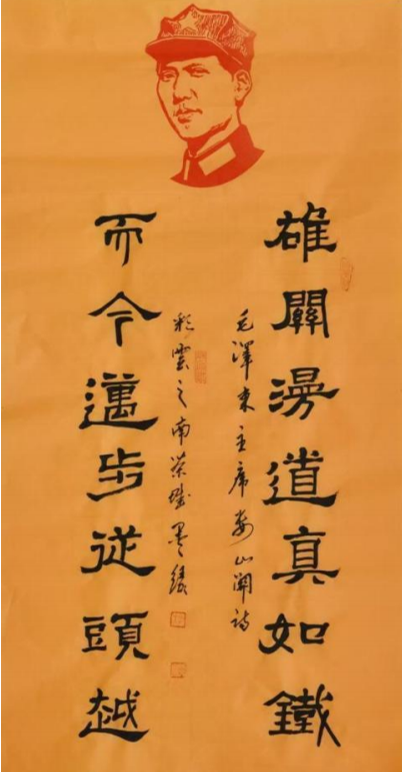 雄關漫道真如鐵
毛澤東主席婁山關詩
彩雲之南榮墨緣
而今邁步從頭越